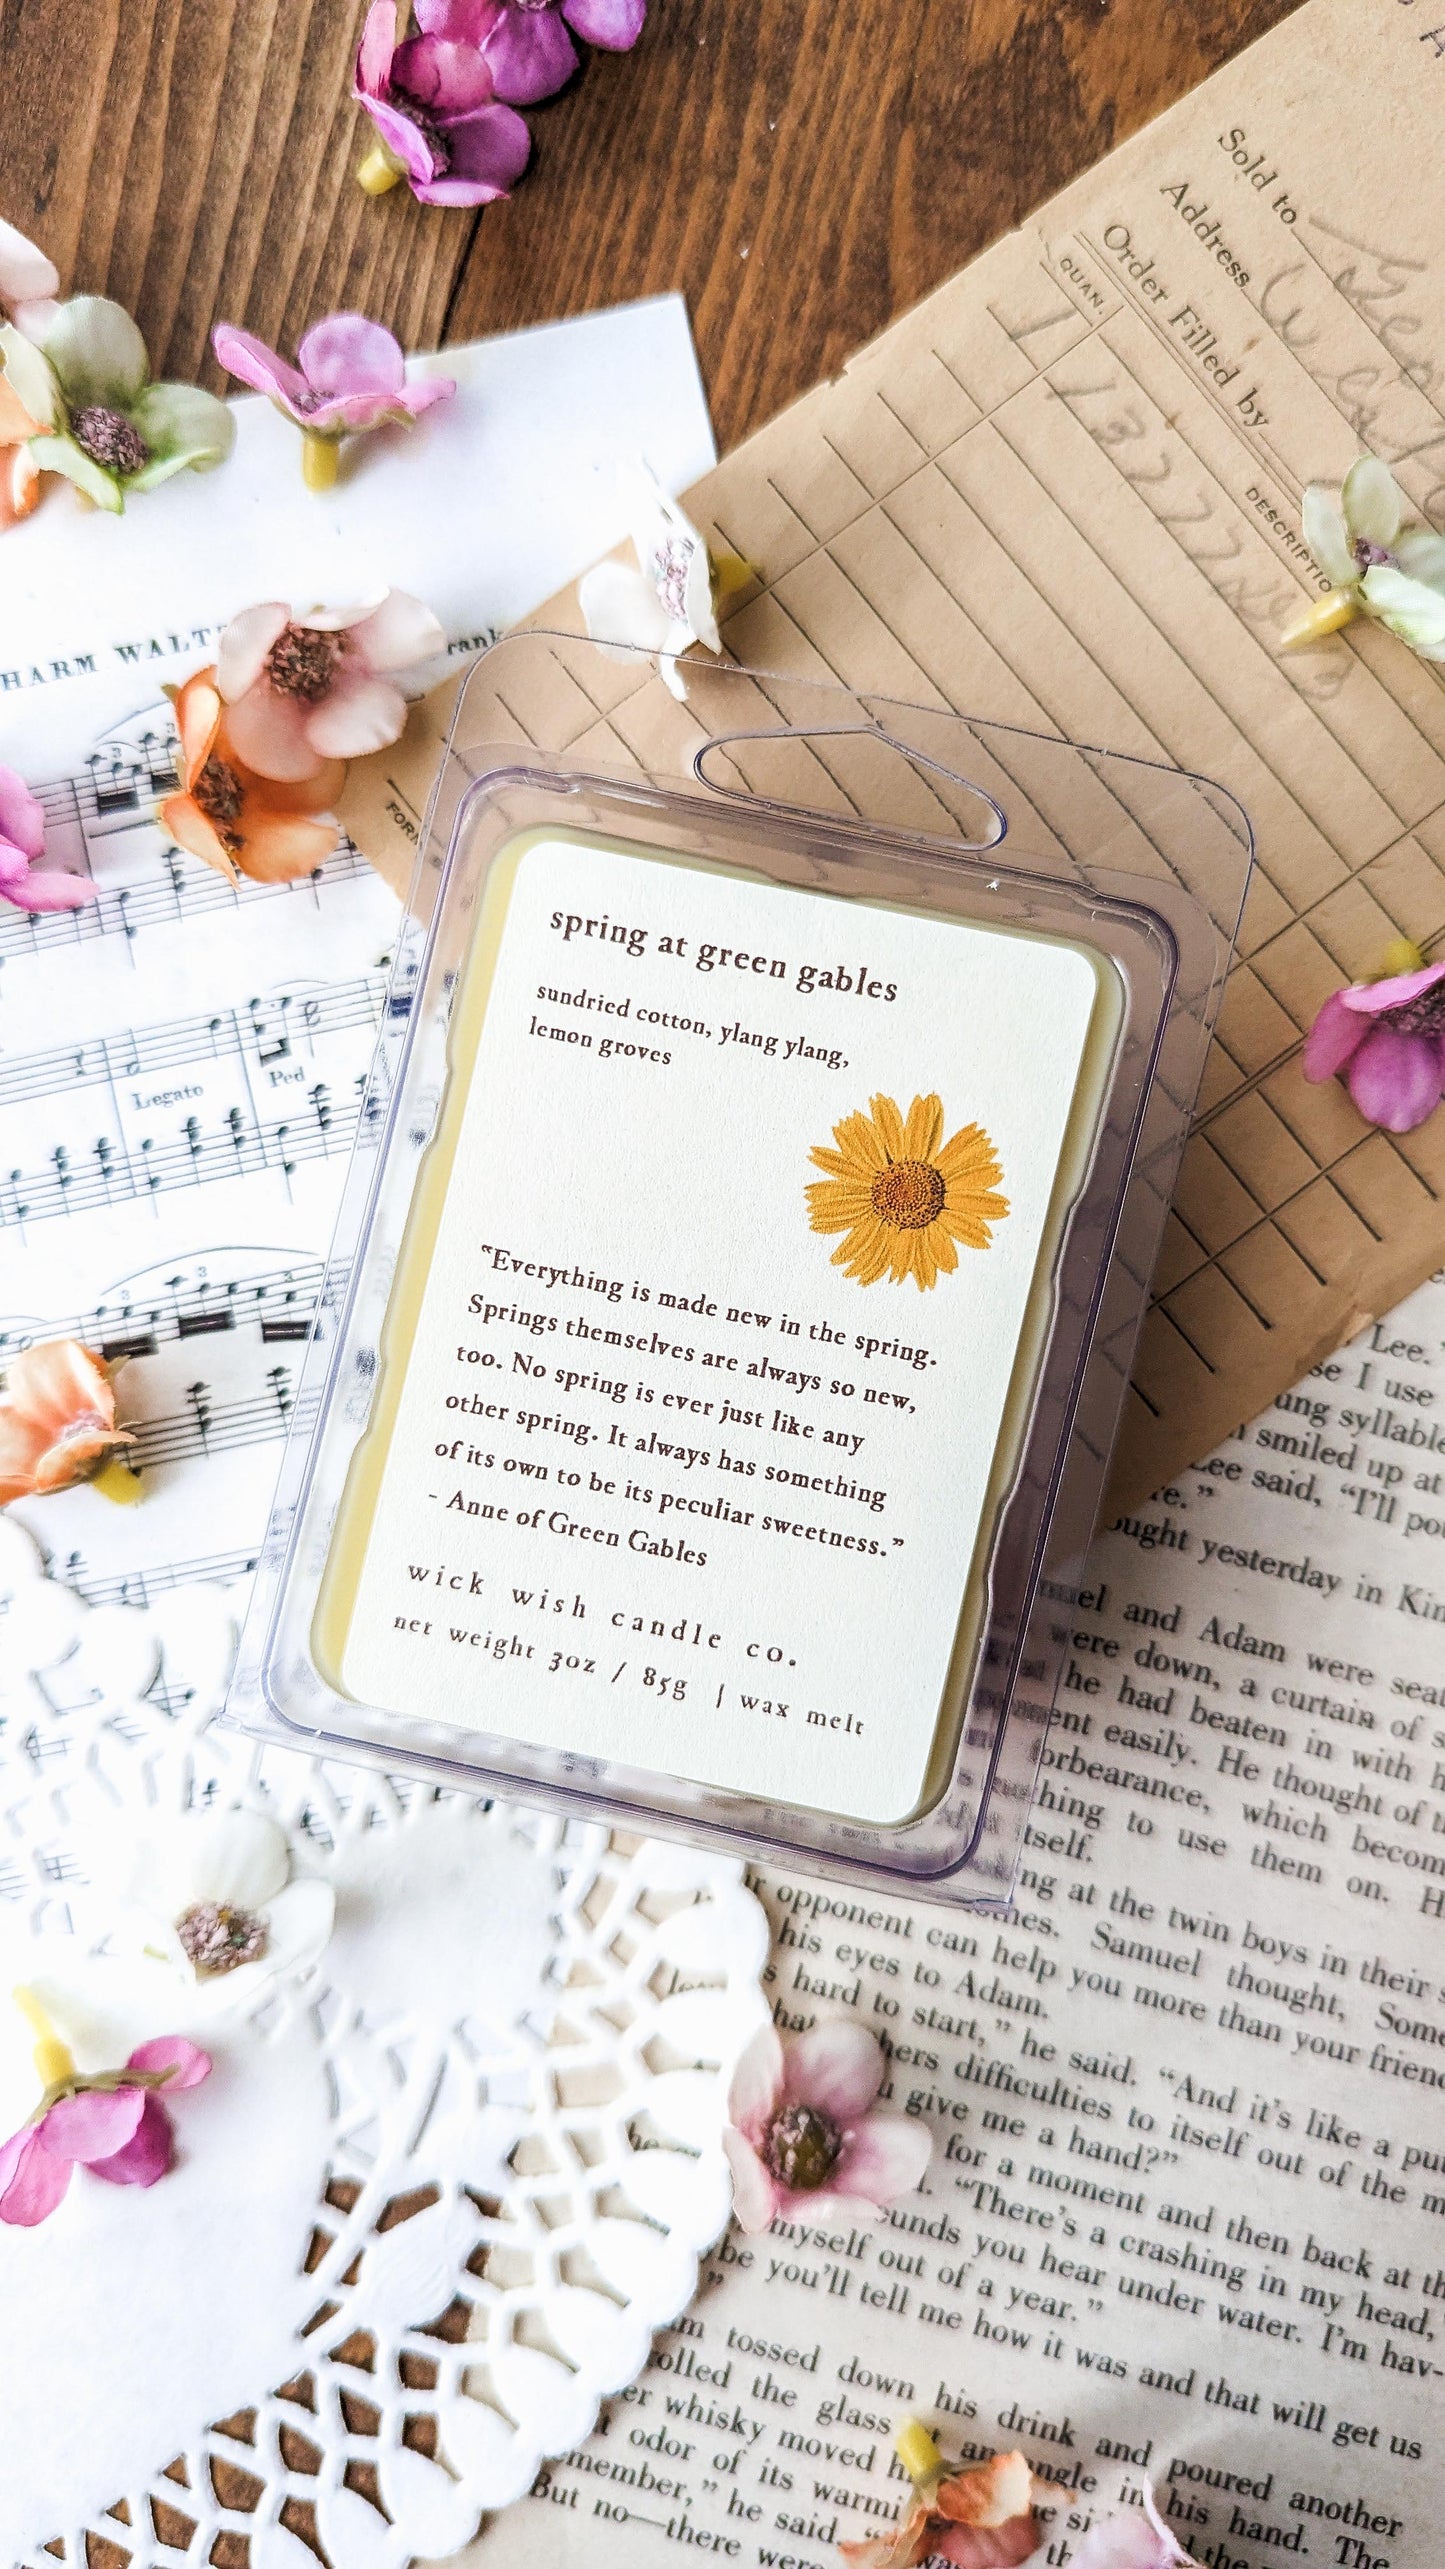 Sold to
Address
Order Filled by
QUAN.
DESCRIPTIO
HARM WALT
rank
FORM
Legato
Ped
3
3
spring at green gables
sundried cotton, ylang ylang,
lemon groves
“Everything is made new in the spring.
Springs themselves are always so new,
too. No spring is ever just like any
other spring. It always has something
of its own to be its peculiar sweetness.”
- Anne of Green Gables
wick wish candle co.
net weight 3oz / 85g | wax melt
Lee.”
se I use
ung syllable
smiled up at
Lee said, “I’ll po
re.”
ought yesterday in Kin
uel and Adam were seat
ere down, a curtain of s
he had beaten in with h
ent easily. He thought of t
orbearance, which becom
hing to use them on. H
tself.
ng at the twin boys in their s
othes. Samuel thought, Some
r opponent can help you more than your friend
his eyes to Adam.
s hard to start,” he said. “And it’s like a pu
hers difficulties to itself out of the m
u give me a hand?”
for a moment and then back at th
“There’s a crashing in my head,
ounds you hear under water. I’m hav-
myself out of a year.”
be you’ll tell me how it was and that will get us
”
m tossed down his drink and poured another
olled the glass at an angle in his hand. The
er whisky moved h
t odor of its warmi
member,” he said.
But no—there were